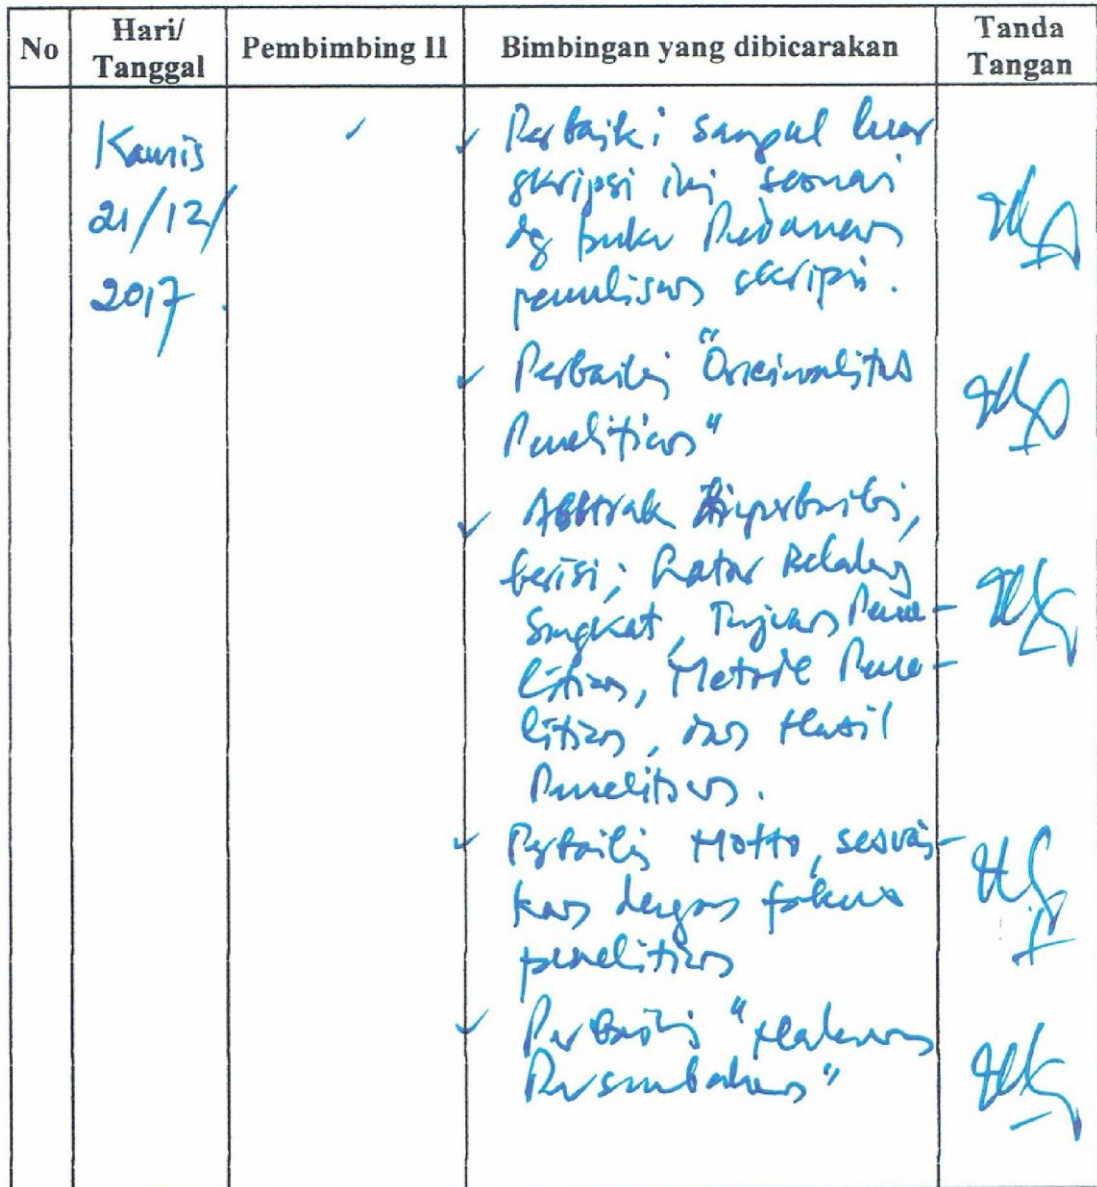 No Hari/ Tanggal Pembimbing II Bimbingan yang dibicarakan Tanda Tangan
Kamis
21/12/
2017.
✓
✓ Perbaiki sampul luar
skripsi ini sesuai
dg buku Pedoman
penulisan skripsi.
✓ Perbaiki "Orisinalitas
Penelitian"
✓ Abstrak diperbaiki,
berisi; Latar Belakang
Singkat, Tujuan Pene-
litian, Metode Pene-
litian, dan Hasil
Penelitian.
✓ Perbaiki Motto, sesuai-
kan dengan fokus
penelitian
✓ Perbaiki "Halaman
Persembahan"